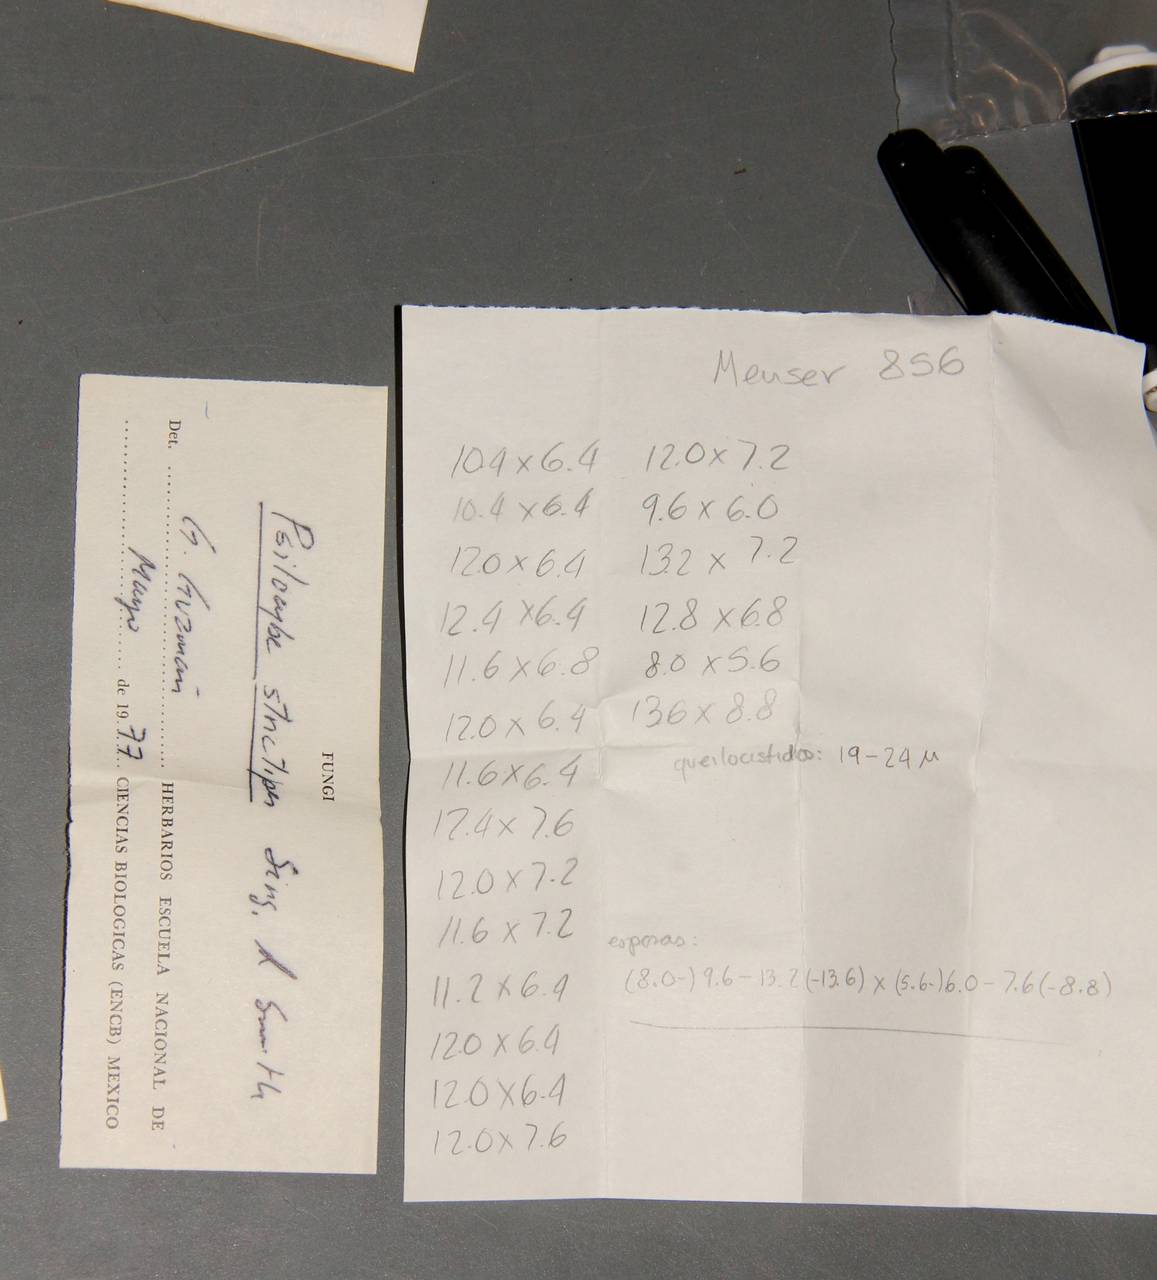 FUNGI
Psilocybe strictipes Sing. & Smith
Det. G. Guzmán HERBARIOS ESCUELA NACIONAL DE
Mayo de 1977. CIENCIAS BIOLOGICAS (ENCB) MEXICO
Meuser 856
10.4 x 6.4
10.4 x 6.4
12.0 x 6.4
12.4 x 6.4
11.6 x 6.8
12.0 x 6.4
11.6 x 6.4
12.4 x 7.6
12.0 x 7.2
11.6 x 7.2
11.2 x 6.4
12.0 x 6.4
12.0 x 6.4
12.0 x 7.6
12.0 x 7.2
9.6 x 6.0
13.2 x 7.2
12.8 x 6.8
8.0 x 5.6
13.6 x 8.8
queilocistidios: 19-24 µ
esporas:
(8.0-) 9.6 - 13.2 (-13.6) x (5.6-) 6.0 - 7.6 (-8.8)